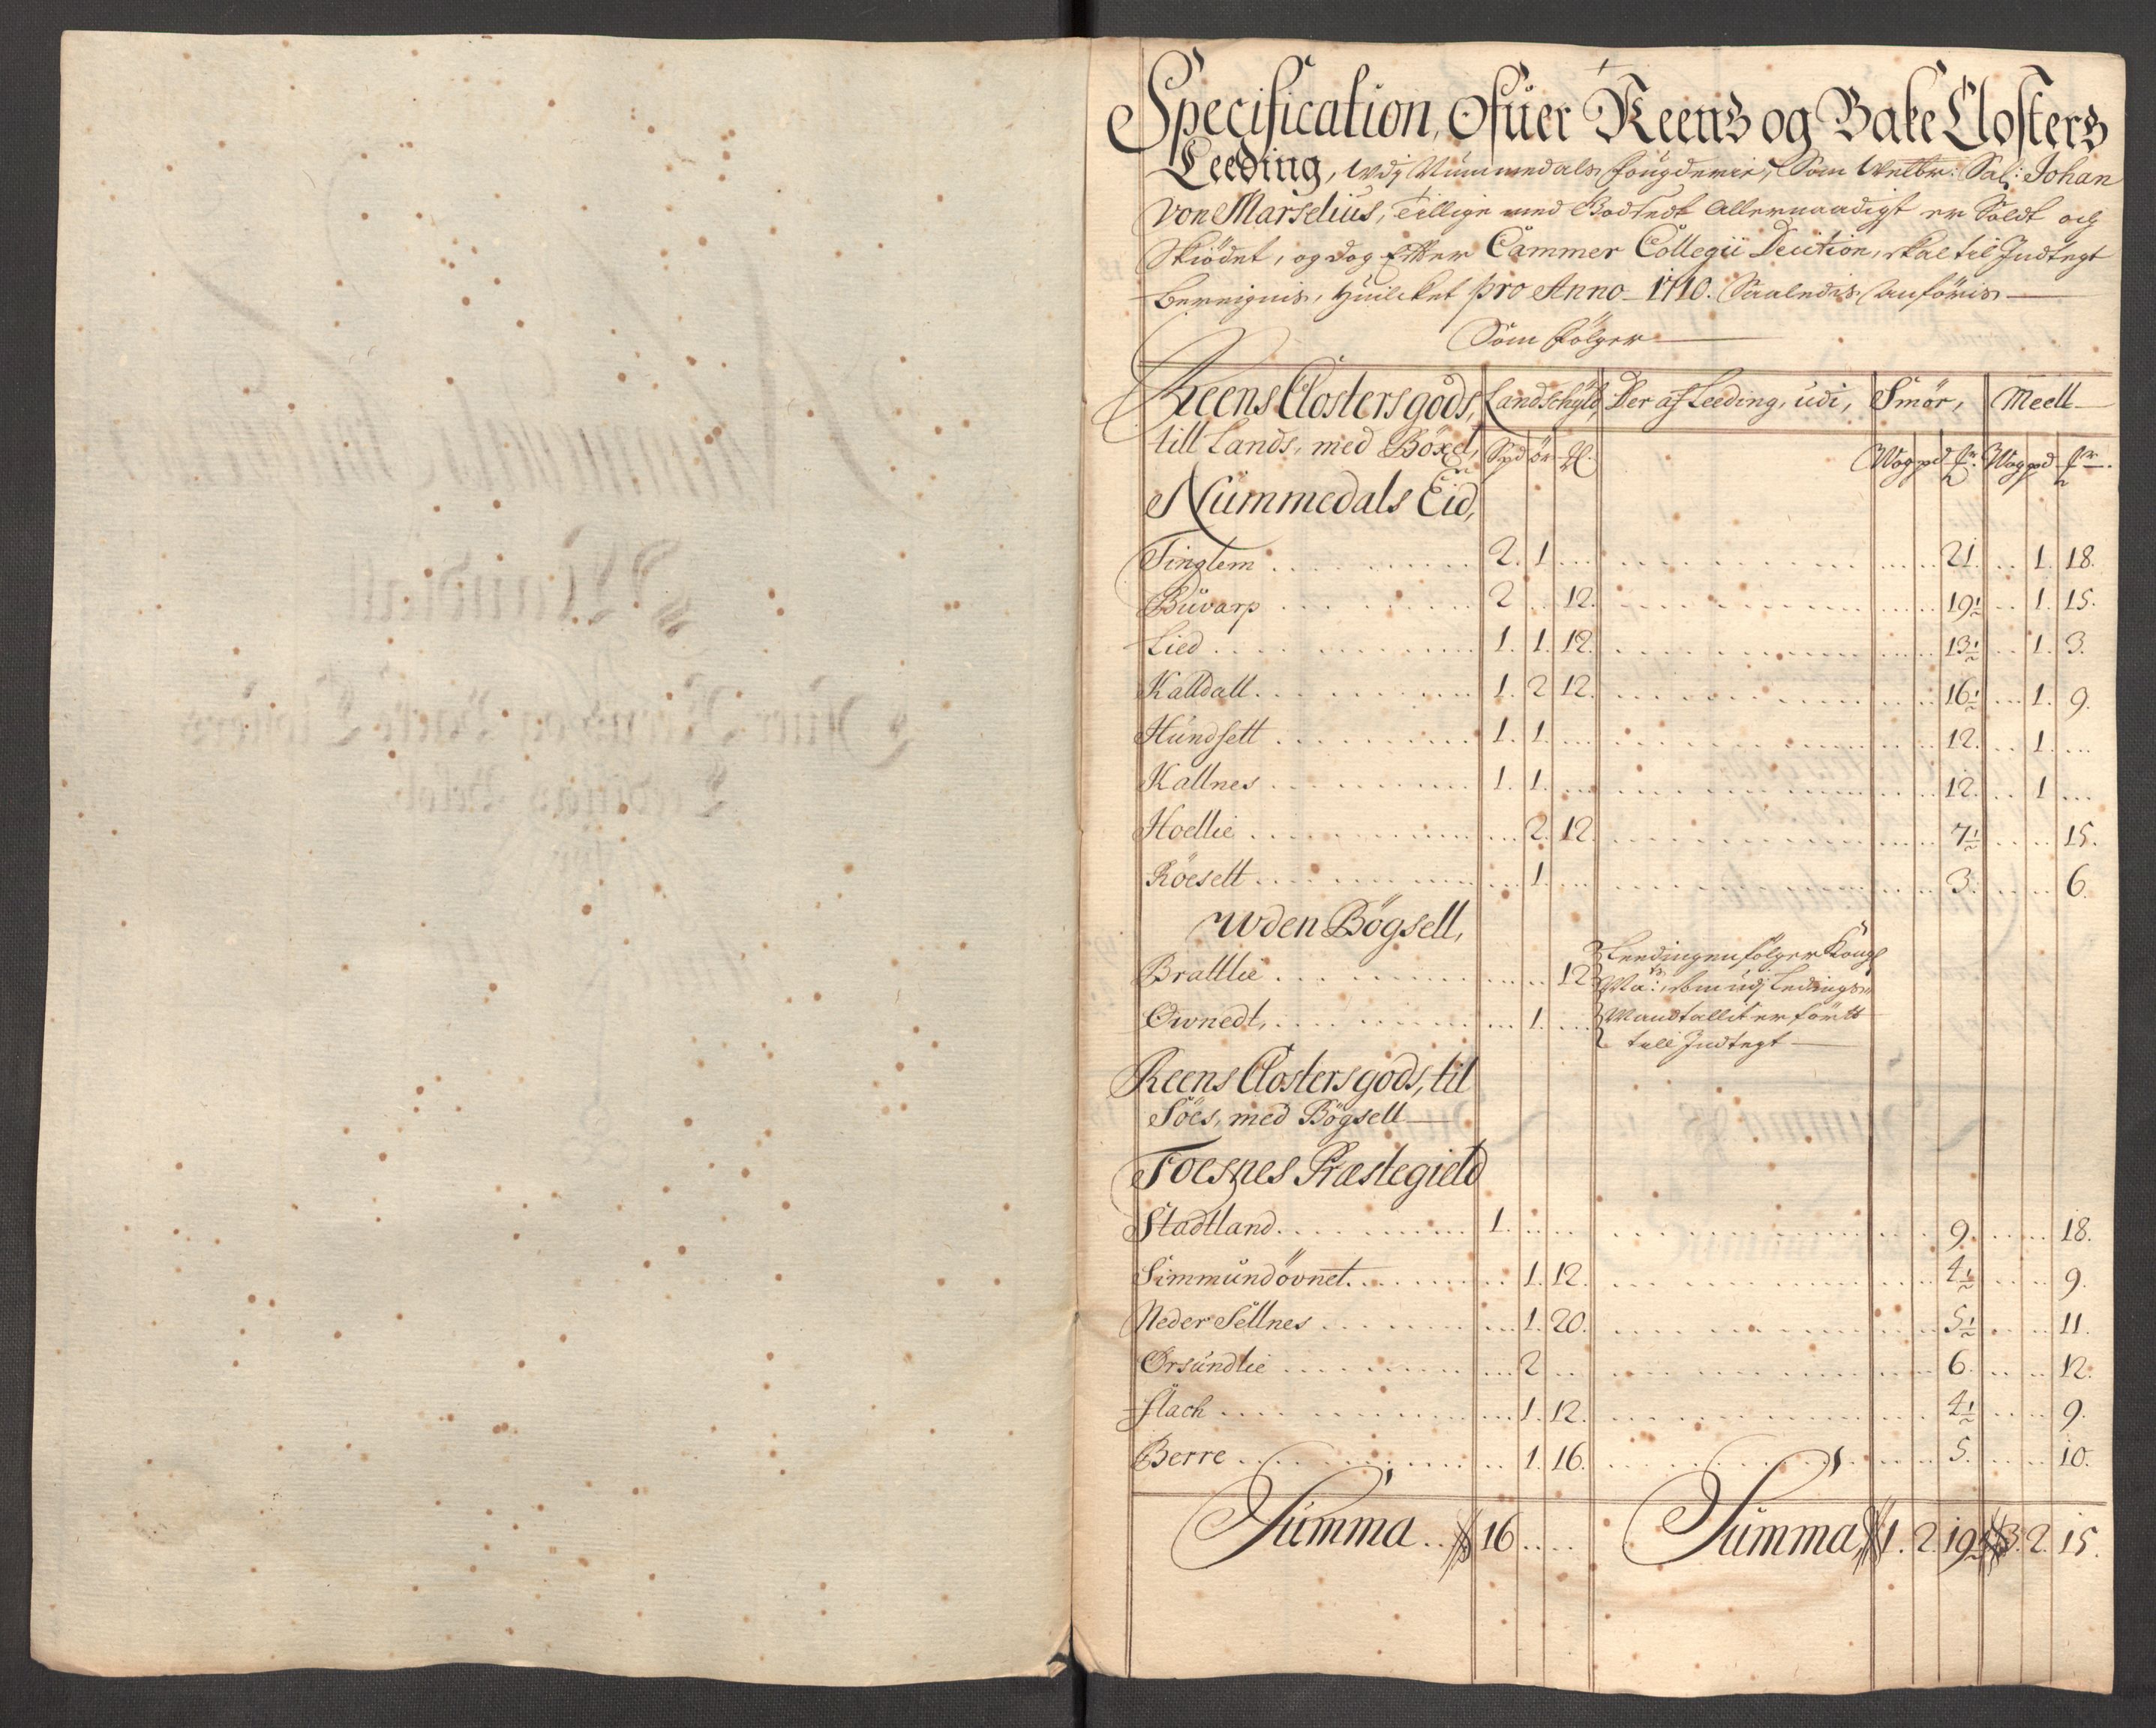 Specification, Ofuer Reens og Bake Closters
Leeding, Udj Nummedals fougderie, Som Velbr: Sal: Johan
von Marselius, Tillige med Bodsedt Allernaadigst er Soldt och
Skiödet, og dog Efter Cammer Collegii Decition, skal til Indtegt
beregnis, huilcket pro Anno 1710. Saaledis anföris
Som fölger
Reens Closters gods, Landschyld, Der af Leeding, udi, Smör, Meell
till Lands, med Böxel, Spd ör Wog pd Wog pd
Nummedals Eid,
Tinglem 2. 1 ... 21. .. 1. 18.
Buvarp 2 .. 12. 19½ .. 1. 15.
Lied 1. 1. 12. 13½ .. 1. 3.
Kalldall 1. 2 12. 16½ ... 1. 9.
Hundsett 1. 1. ... 12. .. 1. ...
Kallnes 1. 1. ... 12. .. 1 ...
Hoellie ... 2. 12 7½ .. .. 15.
Röesett ... 1. ... 3. .. .. 6.
uden Bögsell,
Brattlie ... .. 12. Leedingen fölger Kongl
Ma:, som udj Ledings
Öwnedt, ... 1. ... Mandtallit er fört
till Indtegt
Reens Closters gods, til
Söes, med Bögsell
Foesnes Præstegield
Stadtland 1. .. ... 9. .. .. 18.
Simmundövnet .. 1. 12. 4½ .. .. 9.
Neder Sellnes ... 1. 20. 5½ .. .. 11.
Örsundlie ... 2 ... 6. .. .. 12.
Flach ... 1. 12. 4½ .. .. 9.
Berre .. 1. 16. 5. .. .. 10.
Summa 16 .. .. Summa 1. 2. 19½ 3. 2. 15.